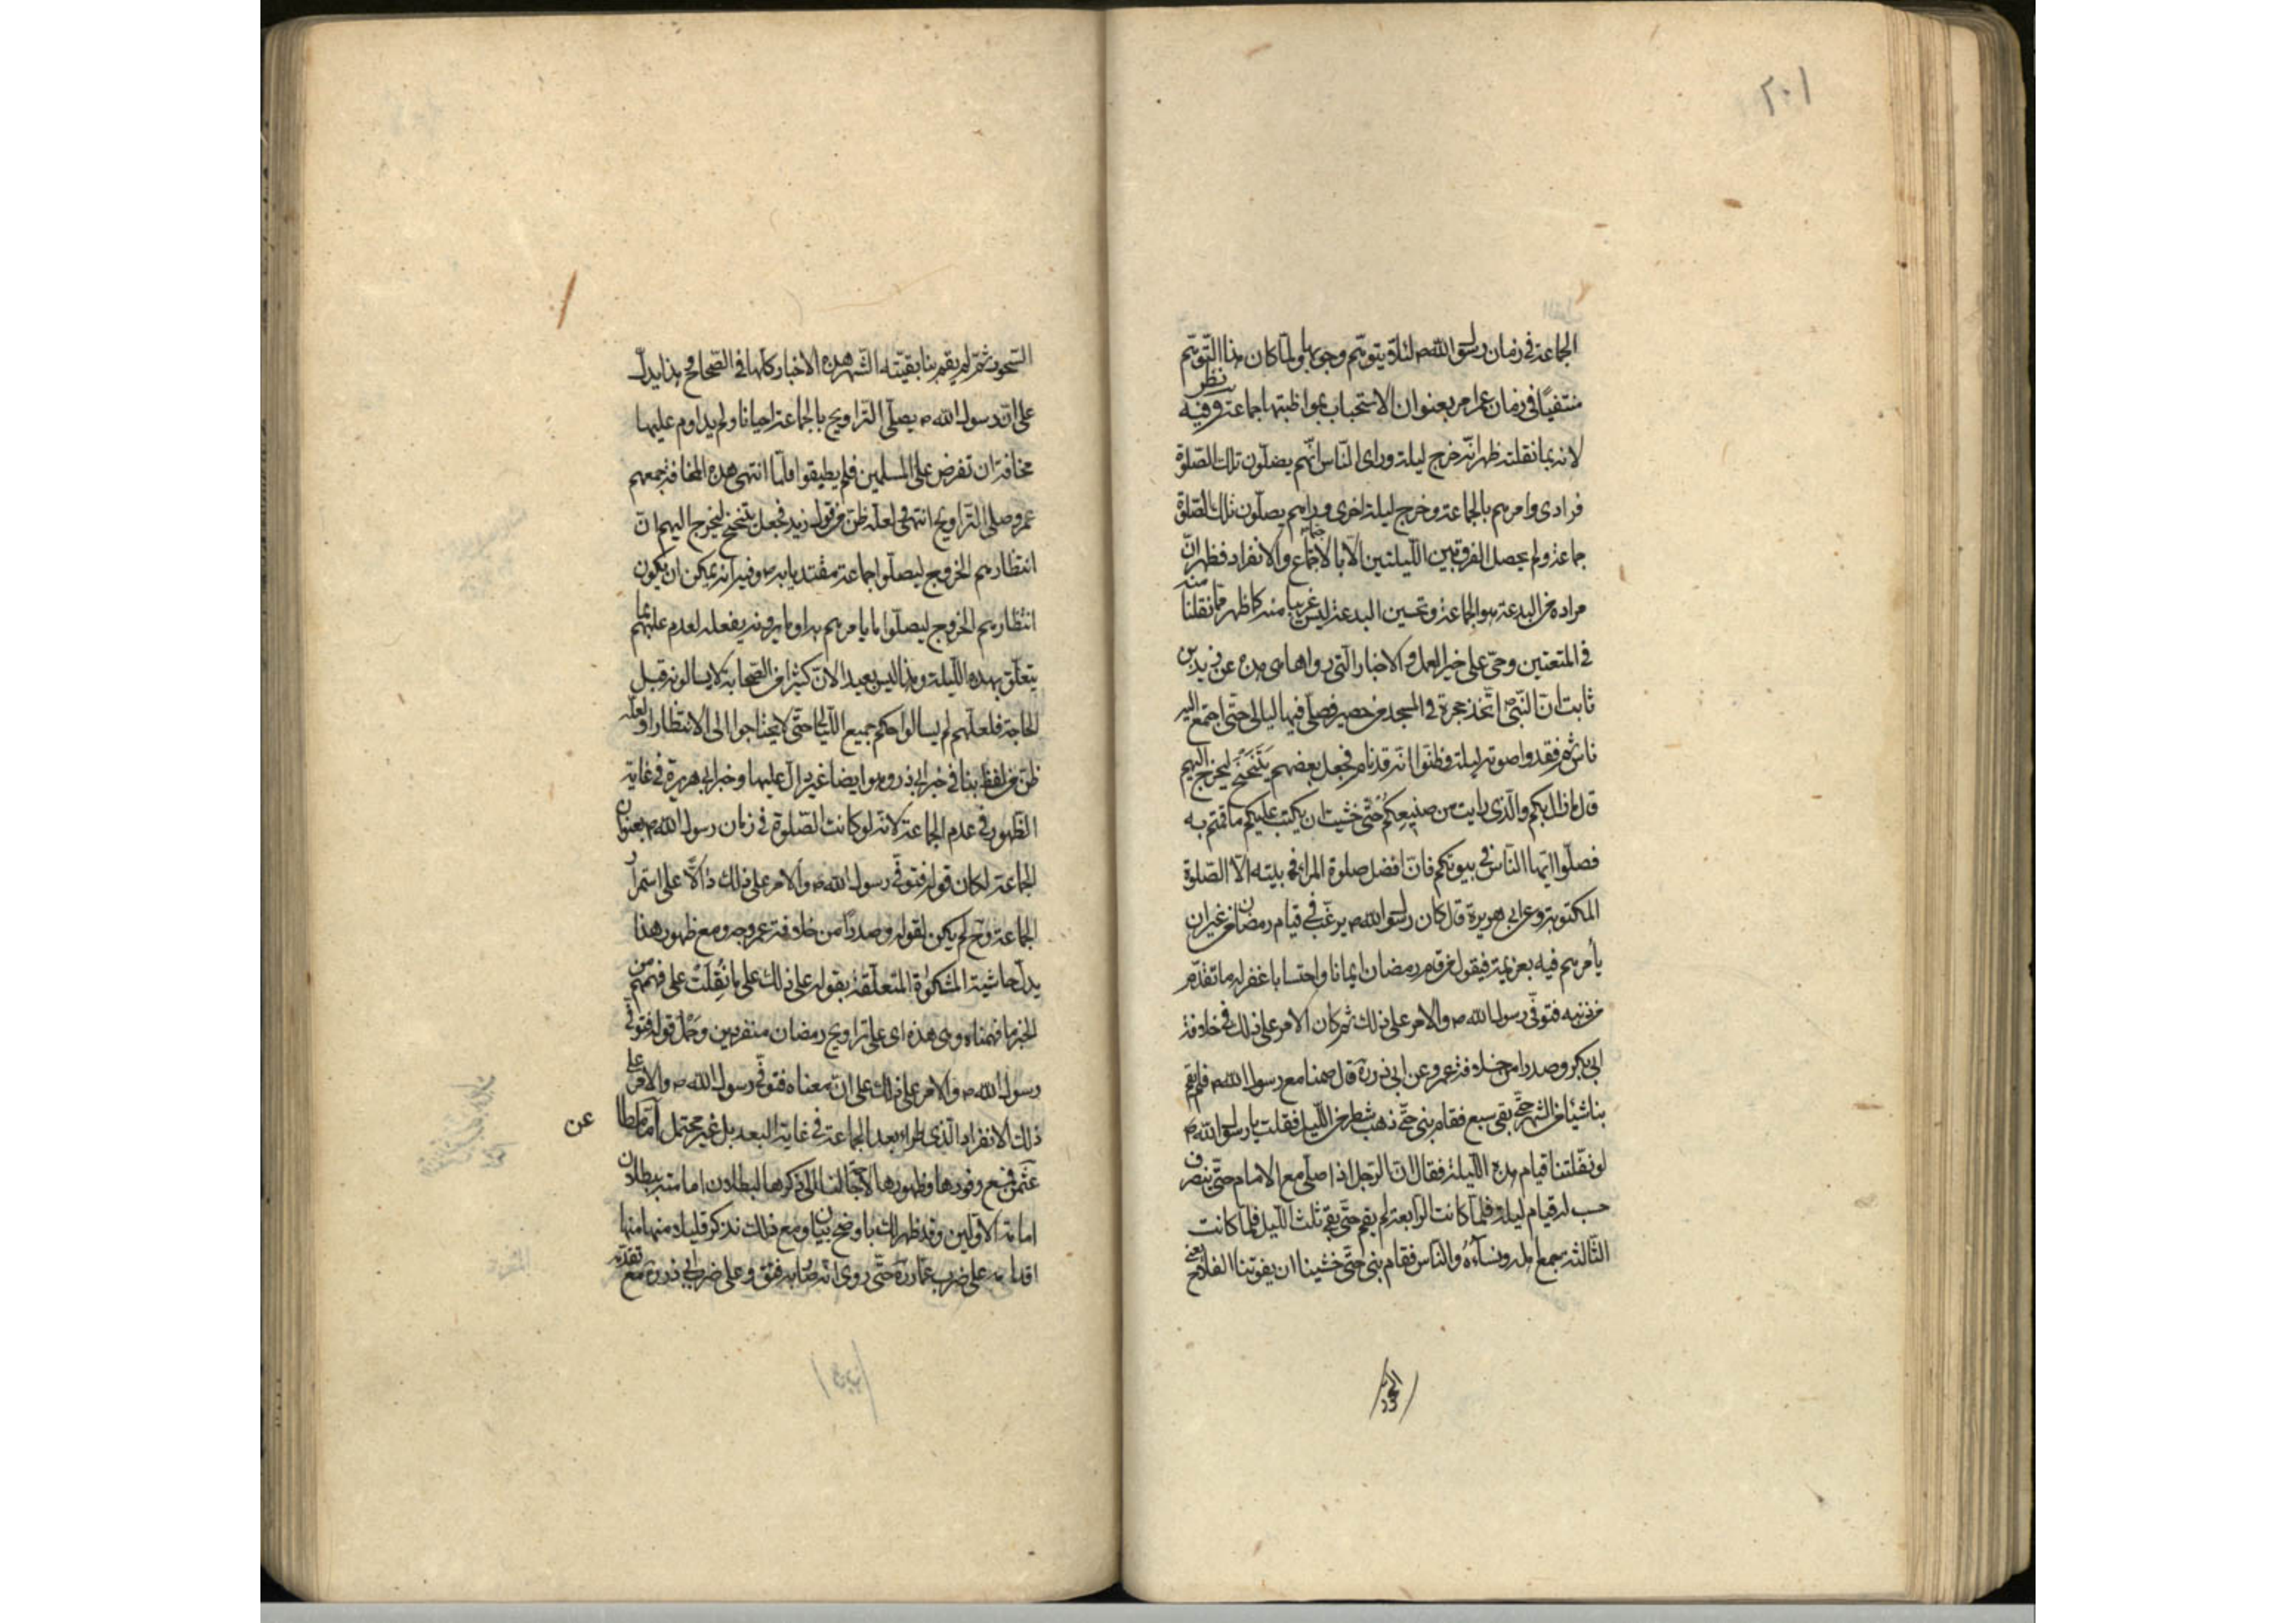 ٢٠١
الجماعة في زمان رسول الله ص لئلا يتوهم وجوبها ولما كان هذا التوهم
منتفيًا في زمان عمر امر بعنوان الاستحباب بمواظبتها جماعة وفيه نظر
لانه بما نقلته ظهر انه خرج ليلة وراى الناس انهم يصلون تلك الصلوة
فرادى وامرهم بالجماعة وخرج ليلة اخرى وراهم يصلون تلك الصلوة
جماعة ولم يحصل الفرق بين الليلتين الا بالاجتماع والانفراد فظهر ان
مراده من البدعة هو الجماعة وتحسين البدعة ليس غريبا منه كما ظهر مما نقلنا منه
في المتعتين وحي على خير العمل والاخبار التي رواها هي هذه عن زيد بن
ثابت ان النبي ص اتخذ حجرة في المسجد من حصير فصلى فيها ليالي حتى اجتمع اليه
ناس ثم فقدوا صوته ليلة وظنوا انه قد نام فجعل بعضهم يتنحنح ليخرج اليهم
قال ما زال بكم والذي رايت من صنيعكم حتى خشيت ان يكتب عليكم ما قمتم به
فصلوا ايها الناس في بيوتكم فان افضل صلوة المرء في بيته الا الصلوة
المكتوبة وعن ابي هريرة قال كان رسول الله ص يرغب في قيام رمضان من غير ان
يأمرهم فيه بعزيمة فيقول من قام رمضان ايمانا واحتسابا غفر له ما تقدم
من ذنبه فتوفي رسول الله ص والامر على ذلك ثم كان الامر على ذلك في خلافة
ابي بكر وصدرا من خلافة عمر وعن ابي ذر ره قال صمنا مع رسول الله ص فلم يقم
بنا شيئا من الشهر حتى بقي سبع فقام بنا حتى ذهب شطر من الليل فقلت يا رسول الله ص
لو نفلتنا قيام هذه الليلة فقال ان الرجل اذا صلى مع الامام حتى ينصرف
حسب له قيام ليلة فلما كانت الرابعة لم يقم حتى بقي ثلث الليل فلما كانت
الثالثة جمع اهله ونساءه والناس فقام بنا حتى خشينا ان يفوتنا الفلاح يعني
السحور ثم لم يقم بنا بقية الشهر هذه الاخبار كلها في الصحاح هذا يدل
على ان رسول الله ص يصلي التراويح بالجماعة احيانا ولم يداوم عليها
مخافة ان تفرض على المسلمين فلم يطيقوا فلما انتهى هذه المخافة جمعهم
عمر وصلى التراويح انتهى لعله ظن من قول زيد فجعل يتنحنح ليخرج اليهم ان
انتظارهم الخروج ليصلوا جماعة مقتديا به ص وفيه انه يمكن ان يكون
انتظارهم الخروج ليصلوا ما يامرهم به او ما يرونه يفعله لعدم علمهم بما
يتعلق بهذه الليلة وهذا ليس بعيدا لان كثيرا من الصحابة لا يسالونه قبل
الحاجة فلعلهم لم يسالوا حكم جميع الليالي حتى لا يحتاجوا الى الانتظار او لعله
ظن من لفظ بنا في خبر ابي ذر وهو ايضا غير دال عليها وخبر ابي هريرة في غاية
الظهور في عدم الجماعة لانه لو كانت الصلوة في زمان رسول الله ص بعنوان
الجماعة لكان قوله فتوفي رسول الله ص والامر على ذلك دالا على استمرار
الجماعة وح لم يكن لقوله وصدرا من خلافة عمر وجه ومع ظهور هذا
يدل حاشية المشكوة المتعلقة بقوله على ذلك على ما نقلت على فهمهم من
الخبر ما فهمناه وهي هذه اى على تراويح رمضان منفردين وحمل قوله فتوفي
رسول الله ص والامر على ذلك على ان معناه فتوفي رسول الله ص والامر على
ذلك الانفراد الذي طراء بعد الجماعة في غاية البعد بل غير محتمل اما مطا
عن
عثمن فمع وفورها وظهورها لا حاجة لنا الى ذكرها لبطلان امامته ببطلان
امامة الاولين وقد ظهر لك باوضح بيان ومع ذلك نذكر قليلا منها منها
اقدامه على ضرب عمار ره حتى روي انه صابه فتق وعلى ضرب ابي ذر ره مع تقدمه